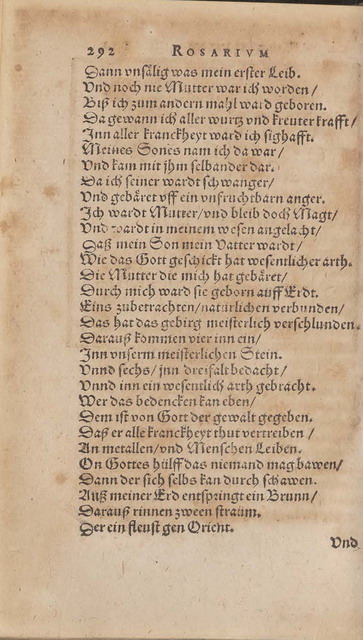 292 ROSARIVM
Dann vnsälig was mein erster Leib.
Vnd noch nie Mutter war ich worden/
Biß ich zum andern mahl ward geboren.
Da gewann ich aller wurtz vnd kreuter krafft/
Jnn aller kranckheyt ward ich sighafft.
Meines Sones nam ich da war/
Vnd kam mit jhm selbander dar.
Da ich seiner wardt schwanger/
Vnd gebäret vff ein vnfruchtbarn anger.
Jch wardt Mutter/vnd bleib doch Magt/
Vnd wardt in meinem wesen angelacht/
Daß mein Son mein Vatter wardt/
Wie das Gott geschickt hat wesentlicher arth.
Die Mutter die mich hat gebäret/
Durch mich ward sie geborn auff Erdt.
Eins zubetrachten/natürlichen verbunden/
Das hat das gebirg meisterlich verschlunden.
Darauß kommen vier inn ein/
Jnn vnserm meisterlichen Stein.
Vnnd sechs/jnn dreifalt bedacht/
Vnnd inn ein wesentlich arth gebracht.
Wer das bedencken kan eben/
Dem ist von Gott der gewalt gegeben.
Daß er alle kranckheyt thut vertreiben/
An metallen/vnd Menschen Leiben.
On Gottes hülff das niemand mag bawen/
Dann der sich selbs kan durch schawen.
Auß meiner Erd entspringt ein Brunn/
Darauß rinnen zween straum.
Der ein fleust gen Orient.
Vnd